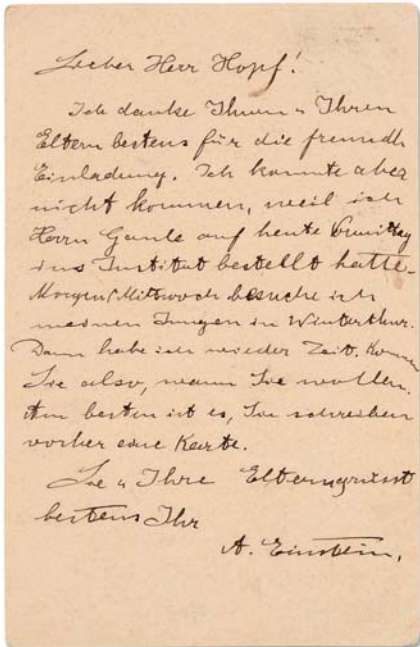 Lieber Herr Hopf!
Ich danke Ihnen u Ihren
Eltern bestens für die freundl
Einladung. Ich konnte aber
nicht kommen, weil ich
Herrn Gaule auf heute
ins Institut bestellt hatte.
Morgen (Mittwoch besuche ich
meinen Jungen in Winterthur.
Dann habe ich wieder Zeit. Kommen
Sie also, wann Sie wollen.
Am besten ist es, Sie schreiben
vorher eine Karte.
Sie u Ihre Eltern grüsst
bestens Ihr
A. Einstein.